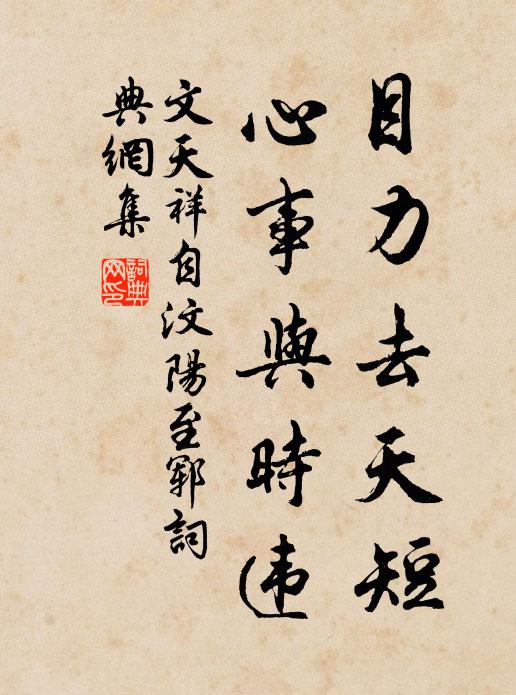 目力去天短
心事與時违
文天祥自汶陽至鄆詞
典網集
詞典
网印